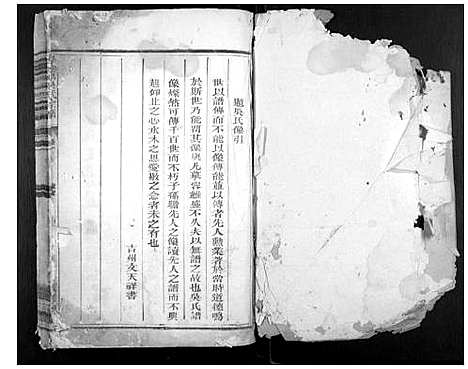 題吳氏像引
世以譜傳而不能以像傳能並以傳者先人勳業著於當時道德鳴
於斯世乃能爾其像與凡草容雖盛不久夫以無譜之故也吳氏譜
像燦然可傳千百世而不朽子孫瞻先人之像讀先人之譜而不興
趨仰止之心永木之思愛敬之念者未之有也
吉州文天祥書